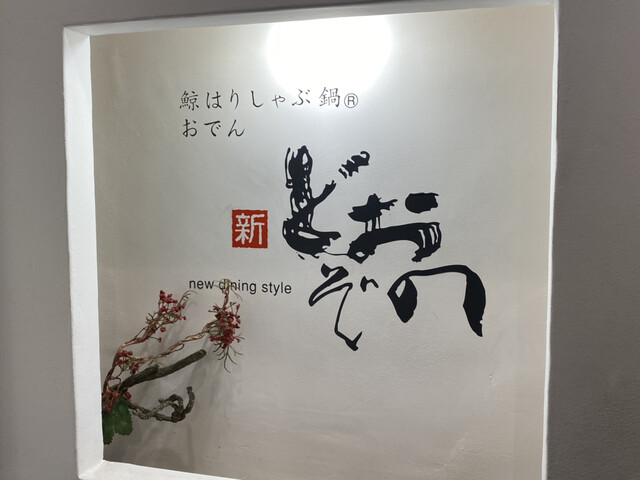 鯨はりしゃぶ鍋®
おでん
新 どおぞの
new dining style